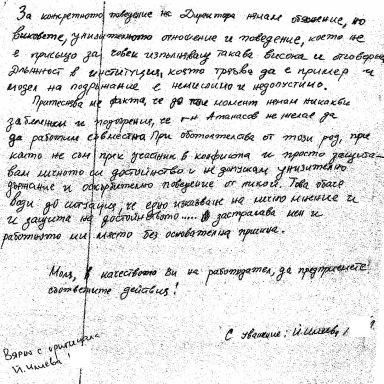 За конкретното поведение на Директора нямам обяснение, но
виковете, унизителното отношение и поведение, което не
е присъщо за човек изпълняващ такава висока и отговорна
длъжност в институция, която трябва да е пример и
модел на подражание е немислимо и недопустимо.
Притеснява ме факта, че до този момент нямам никакви
забележки и подозрение, че г-н Атанасов не желае да
да работим съвместно. При обстоятелства от този род, при
като не съм пряк участник в конфликта и просто защита-
вам личното си достойнство и не допускам унизително
държание и оскърбително поведение от никой. Това обаче
води до ситуация, че едно изказване на лично мнение и
и защита на достойнството..... застрашава мен и
работното ми място без основателна причина.
Моля, в качеството Ви на работодател, да предприемете
съответните действия!
С уважение: Й. Илиева
Вярно с оригинала
Й. Илиева